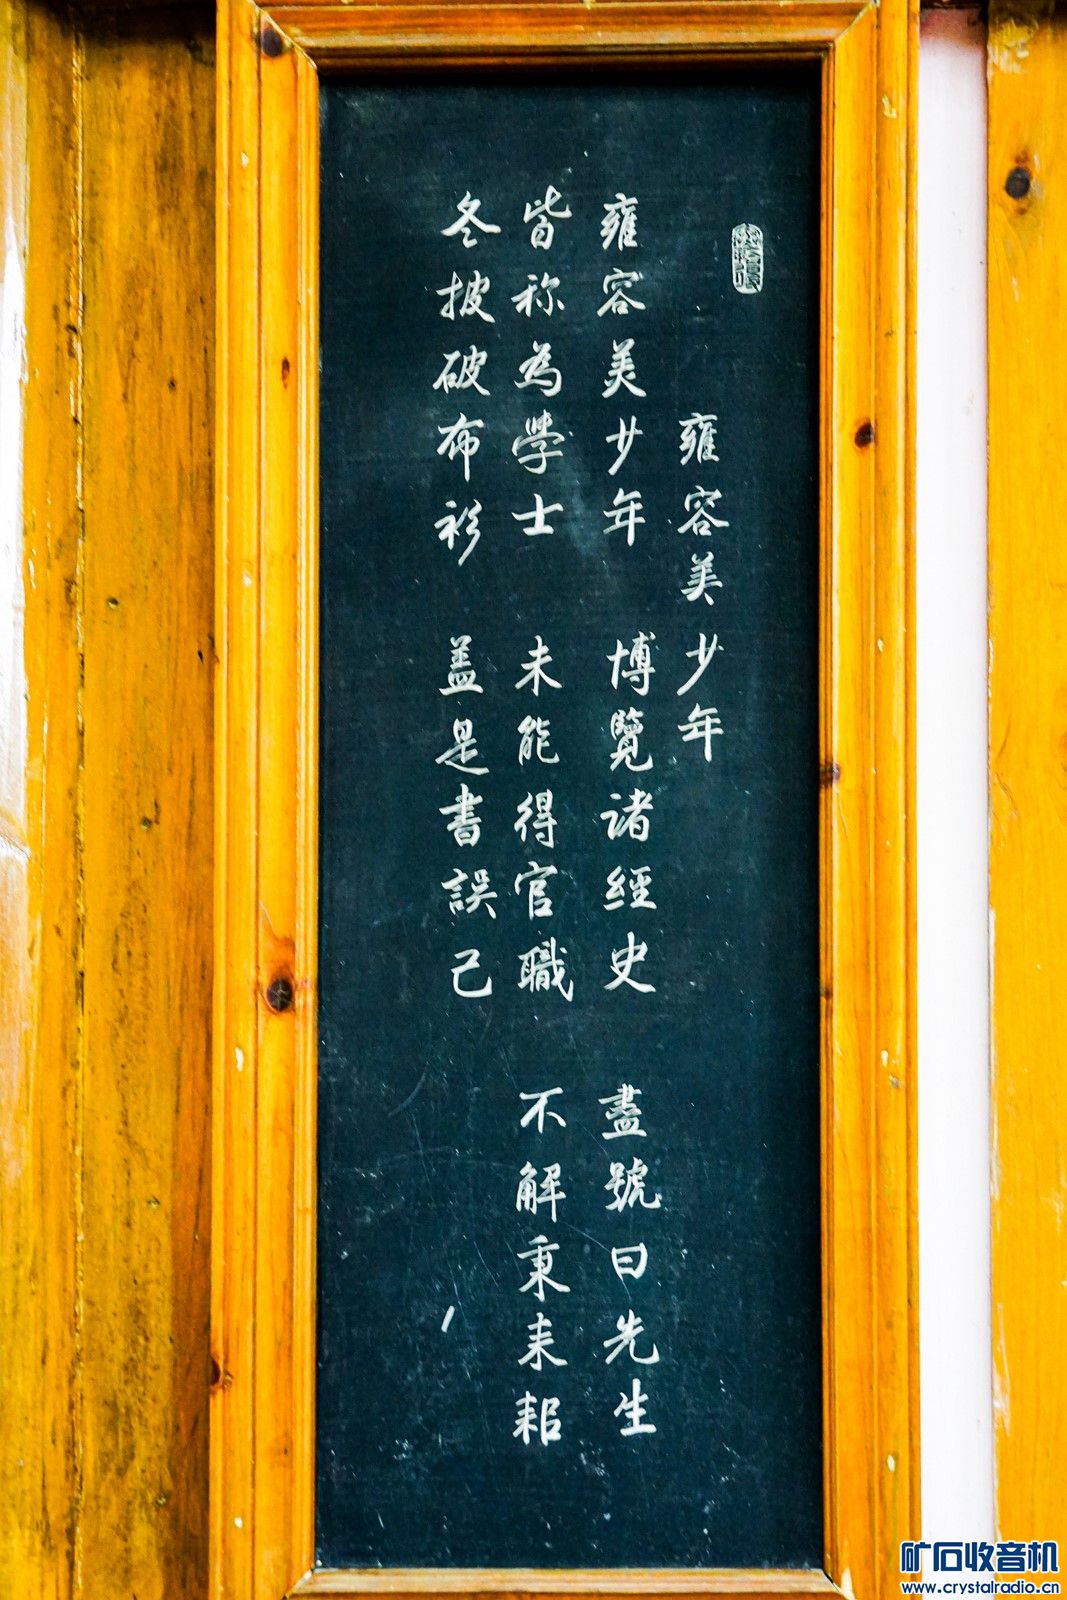 雍容美少年
雍容美少年 博覽諸經史 盡號曰先生
皆称為學士 未能得官職 不解秉耒耜
冬披破布衫 盖是書誤己
矿石收音机
www.crystalradio.cn